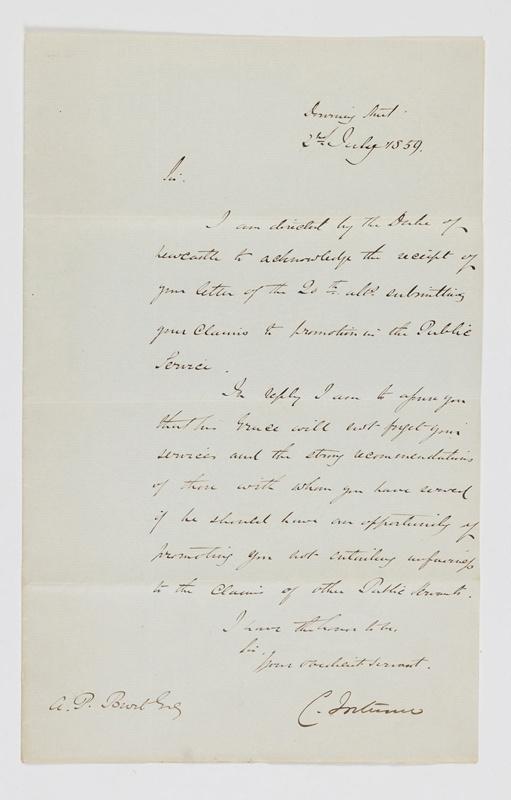 Downing Street
2nd July 1859.
Sir.
I am directed by the Duke of
Newcastle to acknowledge the receipt of
your letter of the 20th ulto. submitting
your Claims to promotion in the Public
Service.
In reply I am to assure you
that his Grace will not forget your
services and the strong recommendations
of those with whom you have served
if he should have an opportunity of
promoting you not entailing unfairness
to the Claims of other Public Servants.
I have the honor to be,
Sir,
Your obedient servant.
C. Fortescue
A. P. Esq